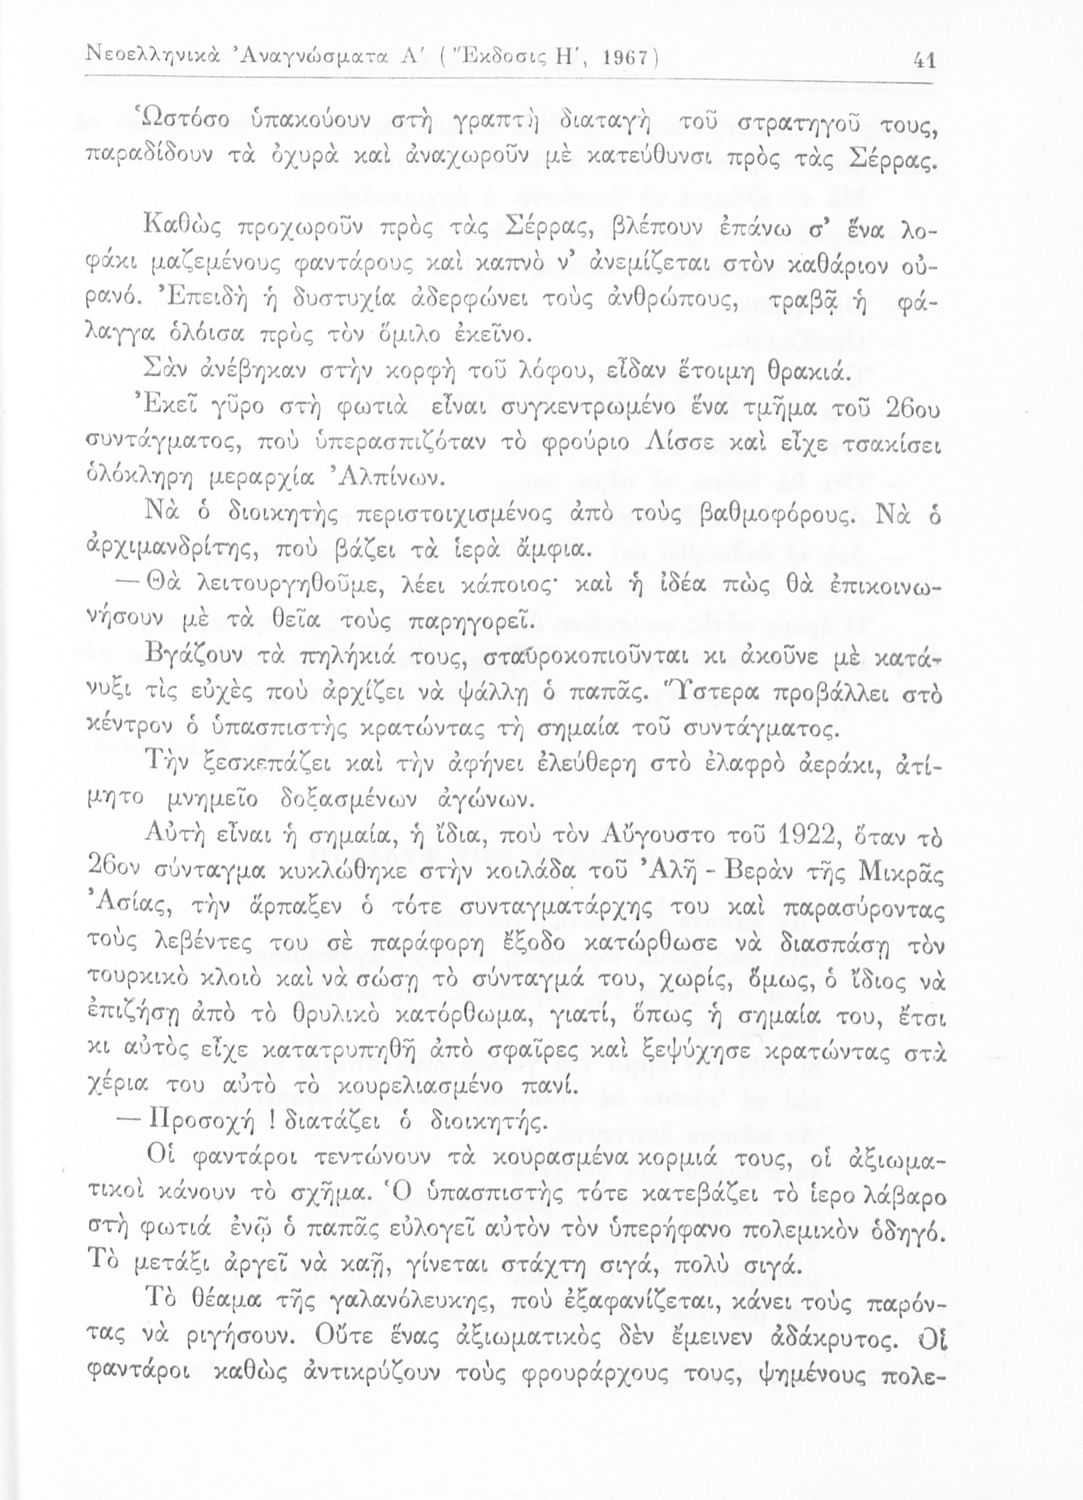 Νεοελληνικὰ Ἀναγνώσματα Α΄ ( Ἔκδοσις Η΄, 1967 ) 41
Ὡστόσο ὑπακούουν στὴ γραπτὴ διαταγὴ τοῦ στρατηγοῦ τους,
παραδίδουν τὰ ὀχυρὰ καὶ ἀναχωροῦν μὲ κατεύθυνσι πρὸς τὰς Σέρρας.
Καθὼς προχωροῦν πρὸς τὰς Σέρρας, βλέπουν ἐπάνω σ’ ἕνα λο-
φάκι μαζεμένους φαντάρους καὶ καπνὸ ν’ ἀνεμίζεται στὸν καθάριον οὐ-
ρανό. Ἐπειδὴ ἡ δυστυχία ἀδερφώνει τοὺς ἀνθρώπους, τραβᾷ ἡ φά-
λαγγα ὁλόισα πρὸς τὸν ὅμιλο ἐκεῖνο.
Σὰν ἀνέβηκαν στὴν κορφὴ τοῦ λόφου, εἶδαν ἕτοιμη θρακιά.
Ἐκεῖ γῦρο στὴ φωτιὰ εἶναι συγκεντρωμένο ἕνα τμῆμα τοῦ 26ου
συντάγματος, ποὺ ὑπερασπιζόταν τὸ φρούριο Λίσσε καὶ εἶχε τσακίσει
ὁλόκληρη μεραρχία Ἀλπίνων.
Νὰ ὁ διοικητὴς περιστοιχισμένος ἀπὸ τοὺς βαθμοφόρους. Νὰ ὁ
ἀρχιμανδρίτης, ποὺ βάζει τὰ ἱερὰ ἄμφια.
— Θὰ λειτουργηθοῦμε, λέει κάποιος· καὶ ἡ ἰδέα πὼς θὰ ἐπικοινω-
νήσουν μὲ τὰ θεῖα τοὺς παρηγορεῖ.
Βγάζουν τὰ πηλήκιά τους, σταυροκοπιοῦνται κι ἀκοῦνε μὲ κατά-
νυξι τὶς εὐχὲς ποὺ ἀρχίζει νὰ ψάλλῃ ὁ παπᾶς. Ὕστερα προβάλλει στὸ
κέντρον ὁ ὑπασπιστὴς κρατώντας τὴ σημαία τοῦ συντάγματος.
Τὴν ξεσκεπάζει καὶ τὴν ἀφήνει ἐλεύθερη στὸ ἐλαφρὸ ἀεράκι, ἀτί-
μητο μνημεῖο δοξασμένων ἀγώνων.
Αὐτὴ εἶναι ἡ σημαία, ἡ ἴδια, ποὺ τὸν Αὔγουστο τοῦ 1922, ὅταν τὸ
26ον σύνταγμα κυκλώθηκε στὴν κοιλάδα τοῦ Ἀλῆ - Βερὰν τῆς Μικρᾶς
Ἀσίας, τὴν ἅρπαξεν ὁ τότε συνταγματάρχης του καὶ παρασύροντας
τοὺς λεβέντες του σὲ παράφορη ἔξοδο κατώρθωσε νὰ διασπάσῃ τὸν
τουρκικὸ κλοιὸ καὶ νὰ σώσῃ τὸ σύνταγμά του, χωρίς, ὅμως, ὁ ἴδιος νὰ
ἐπιζήσῃ ἀπὸ τὸ θρυλικὸ κατόρθωμα, γιατί, ὅπως ἡ σημαία του, ἔτσι
κι αὐτὸς εἶχε κατατρυπηθῆ ἀπὸ σφαῖρες καὶ ξεψύχησε κρατώντας στὰ
χέρια του αὐτὸ τὸ κουρελιασμένο πανί.
— Προσοχή ! διατάζει ὁ διοικητής.
Οἱ φαντάροι τεντώνουν τὰ κουρασμένα κορμιά τους, οἱ ἀξιωμα-
τικοὶ κάνουν τὸ σχῆμα. Ὁ ὑπασπιστὴς τότε κατεβάζει τὸ ἱερο λάβαρο
στὴ φωτιά ἐνῷ ὁ παπᾶς εὐλογεῖ αὐτὸν τὸν ὑπερήφανο πολεμικὸν ὁδηγό.
Τὸ μετάξι ἀργεῖ νὰ καῇ, γίνεται στάχτη σιγά, πολὺ σιγά.
Τὸ θέαμα τῆς γαλανόλευκης, ποὺ ἐξαφανίζεται, κάνει τοὺς παρόν-
τας νὰ ριγήσουν. Οὔτε ἕνας ἀξιωματικὸς δὲν ἔμεινεν ἀδάκρυτος. Οἱ
φαντάροι καθὼς ἀντικρύζουν τοὺς φρουράρχους τους, ψημένους πολε-